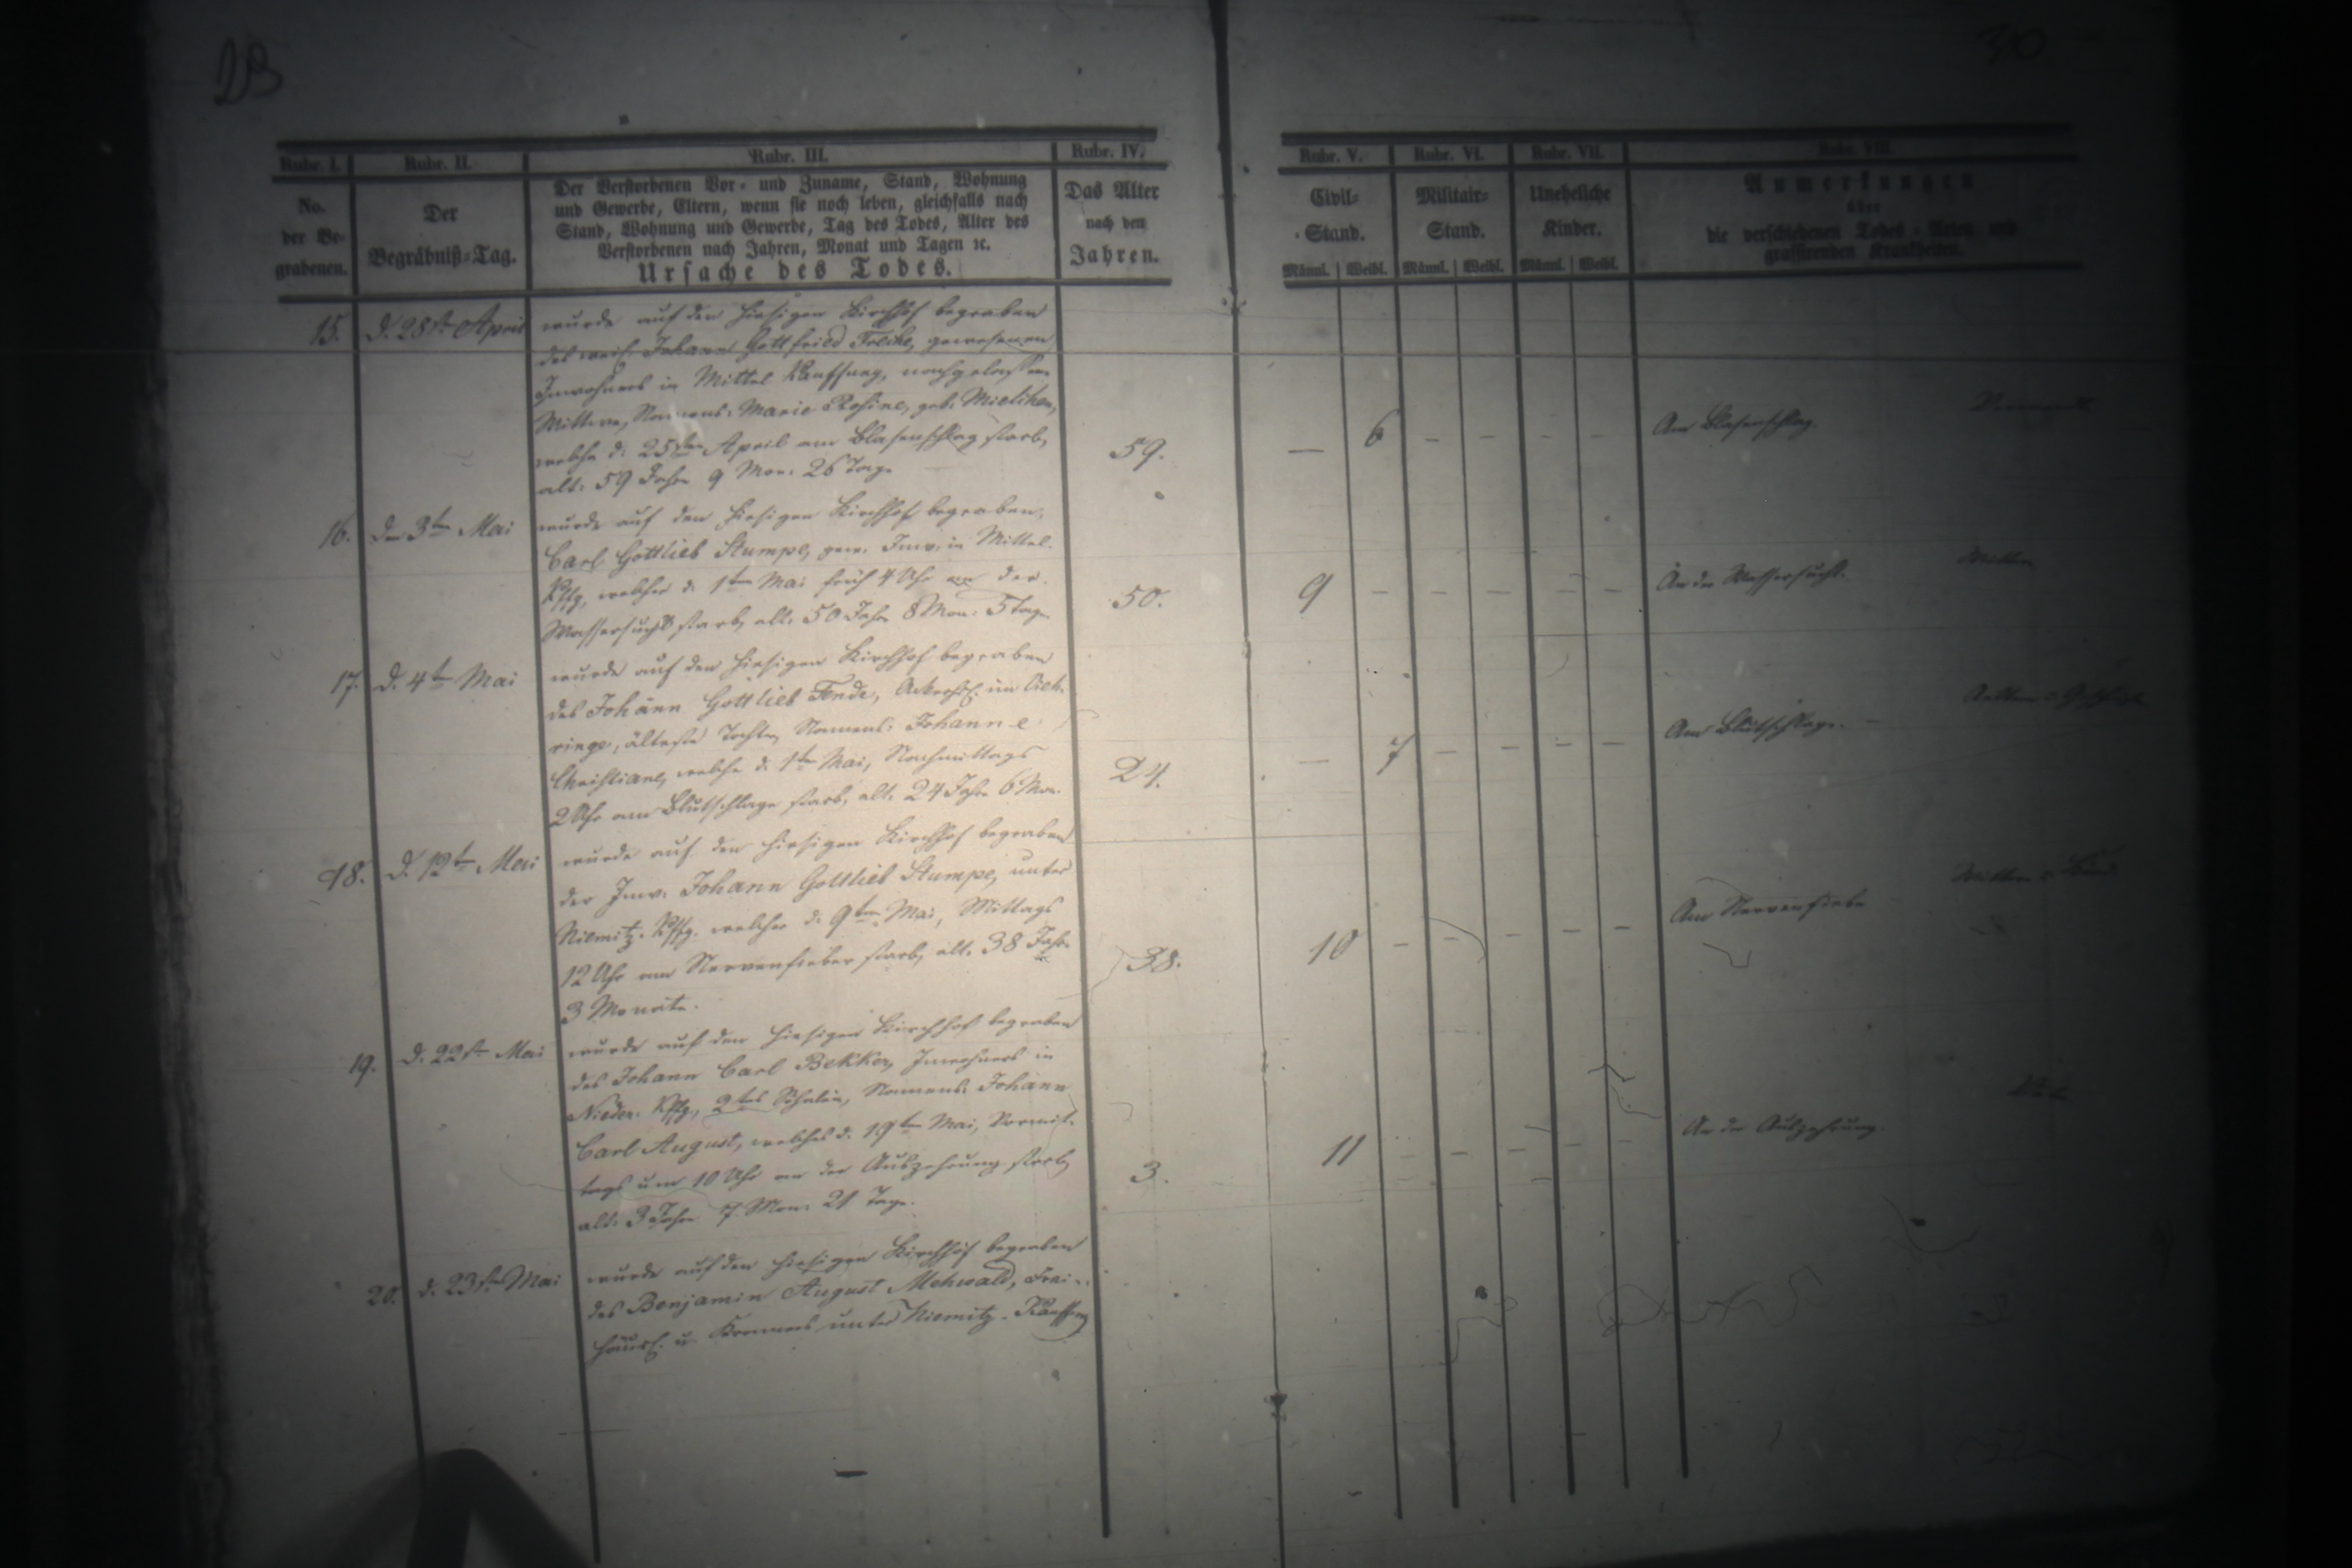 29
30
Rubr. I. Rubr. II. Rubr. III. Rubr. IV. Rubr. V. Rubr. VI. Rubr. VII. Rubr. VIII.
No. der Be- grabenen.
Der Begräbniß-Tag.
Der Verstorbenen Vor- und Zuname, Stand, Wohnung
und Gewerbe, Eltern, wenn sie noch leben, gleichfalls nach
Stand, Wohnung und Gewerbe, Tag des Todes, Alter des
Verstorbenen nach Jahren, Monat und Tagen ꝛc.
Ursache des Todes.
Das Alter
nach den
Jahren.
Civil-
Stand.
Militair-
Stand.
Uneheliche
Kinder.
Männl. Weibl. Männl. Weibl. Männl. Weibl.
Anmerkungen
über
die verschiedenen Todes-Arten und
grassirenden Krankheiten.
15. d. 28st. April wurde auf den hiesigen Kirchhof begraben
des weil. Johann Gottfried Freche, gewesenen
Inwohners in Mittel Kauffung, nachgelassene
Wittwe, Namens: Marie Rosine, geb.
welche d. 25sten April am Blasenschlag starb,
alt: 59 Jahre 9 Mon: 26 Tage
59. — 6 – – – – Am Blasenschlag.
16. den 3ten Mai wurde auf den hiesigen Kirchhof begraben,
Carl Gottlieb Stumpe, gew. Inw. in Mittel
Kffg, welcher d. 1ten Mai früh 4 Uhr an der
Wassersucht starb, alt. 50 Jahr 8 Mon: 5 Tage
50. 9 – – – – – An der Wassersucht.
17. d. 4ten Mai wurde auf den hiesigen Kirchhof begraben
des Johann Gottlieb Ende, im
älteste Tochter, Namens: Johanne
Christiane, welche d. 1ten Mai, Nachmittags
2 Uhr am Blutschlage starb, alt. 24 Jahre 6 Mon.
24. — 7 – – – – Am Blutschlage.
18. d. 12ten Mai wurde auf den hiesigen Kirchhof begraben
der Inw: Johann Gottlieb Stumpe, unter
Niemitz-Kffg. welcher d. 9ten Mai, Mittags
12 Uhr am Nervenfieber starb, alt. 38 Jahr
3 Monate.
38. 10 – – – – – Am Nervenfieber
19. d. 22st. Mai wurde auf den hiesigen Kirchhof begraben
des Johann Carl Bekker, Inwohners in
Nieder-Kffg, 2tes Söhnlein, Namens: Johann
Carl August, welches d. 19ten Mai, Vormit-
tags um 10 Uhr an der Auszehrung starb,
alt: 3 Jahre 7 Mon: 21 Tage.
3. 11 – – – – – An der Auszehrung.
20. d. 23st. Mai wurde auf den hiesigen Kirchhof begraben
des Benjamin August Mehwald, Frei-
häusl. u. Kramers unter Niemitz-Kauffung